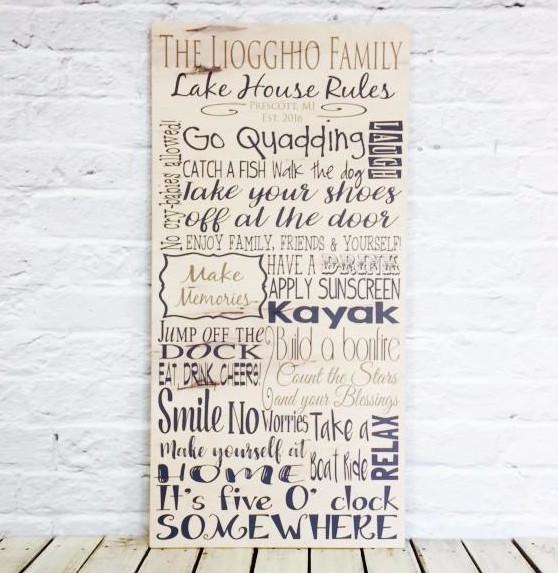 The Liogghio Family
Lake House Rules
Prescott, MI
Est. 2016
No cry-babies allowed!
Go Quadding
LAUGH
CATCH A FISH Walk the dog
Take your shoes
off at the door
ENJOY FAMILY, FRIENDS & YOURSELF!
Make
Memories
HAVE A DRINK
APPLY SUNSCREEN
Kayak
JUMP OFF THE
DOCK
EAT, DRINK, CHEERS!
Build a bonfire
Count the Stars
and your Blessings
Smile No Worries
Take a
Boat Ride
RELAX
Make yourself at
HOME
It's five O' clock
SOMEWHERE